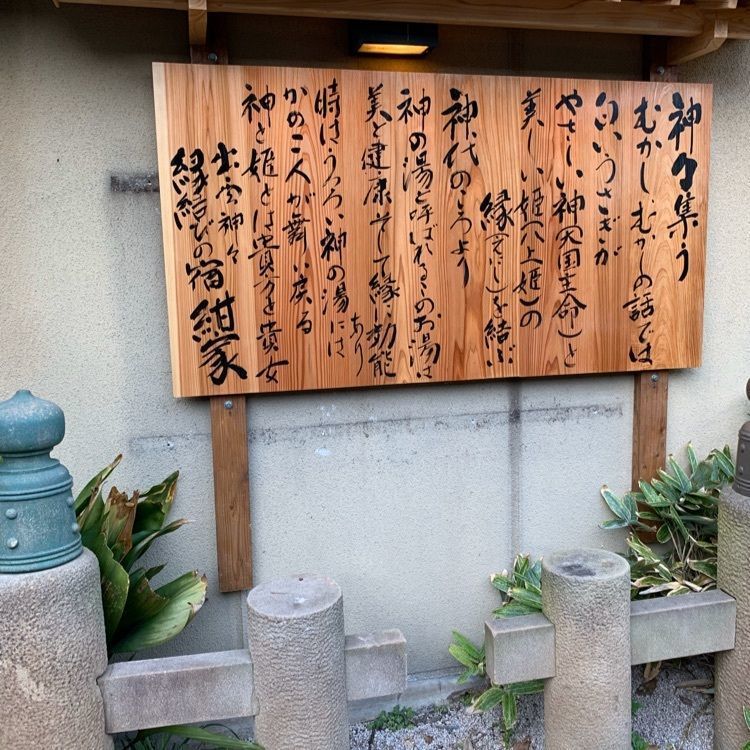 神々集う
むかしむかしの話では
白いうさぎが
やさしい神（大国主命）と
美しい姫（八上姫）の
縁（えにし）を結ぶ
神代のころより
神の湯と呼ばれるこのお湯は
美と健康そして縁に効能あり
時はうつろい神の湯には
かの二人が舞い戻る
神と姫とは貴方と貴女
出雲神々
縁結びの宿 紺家